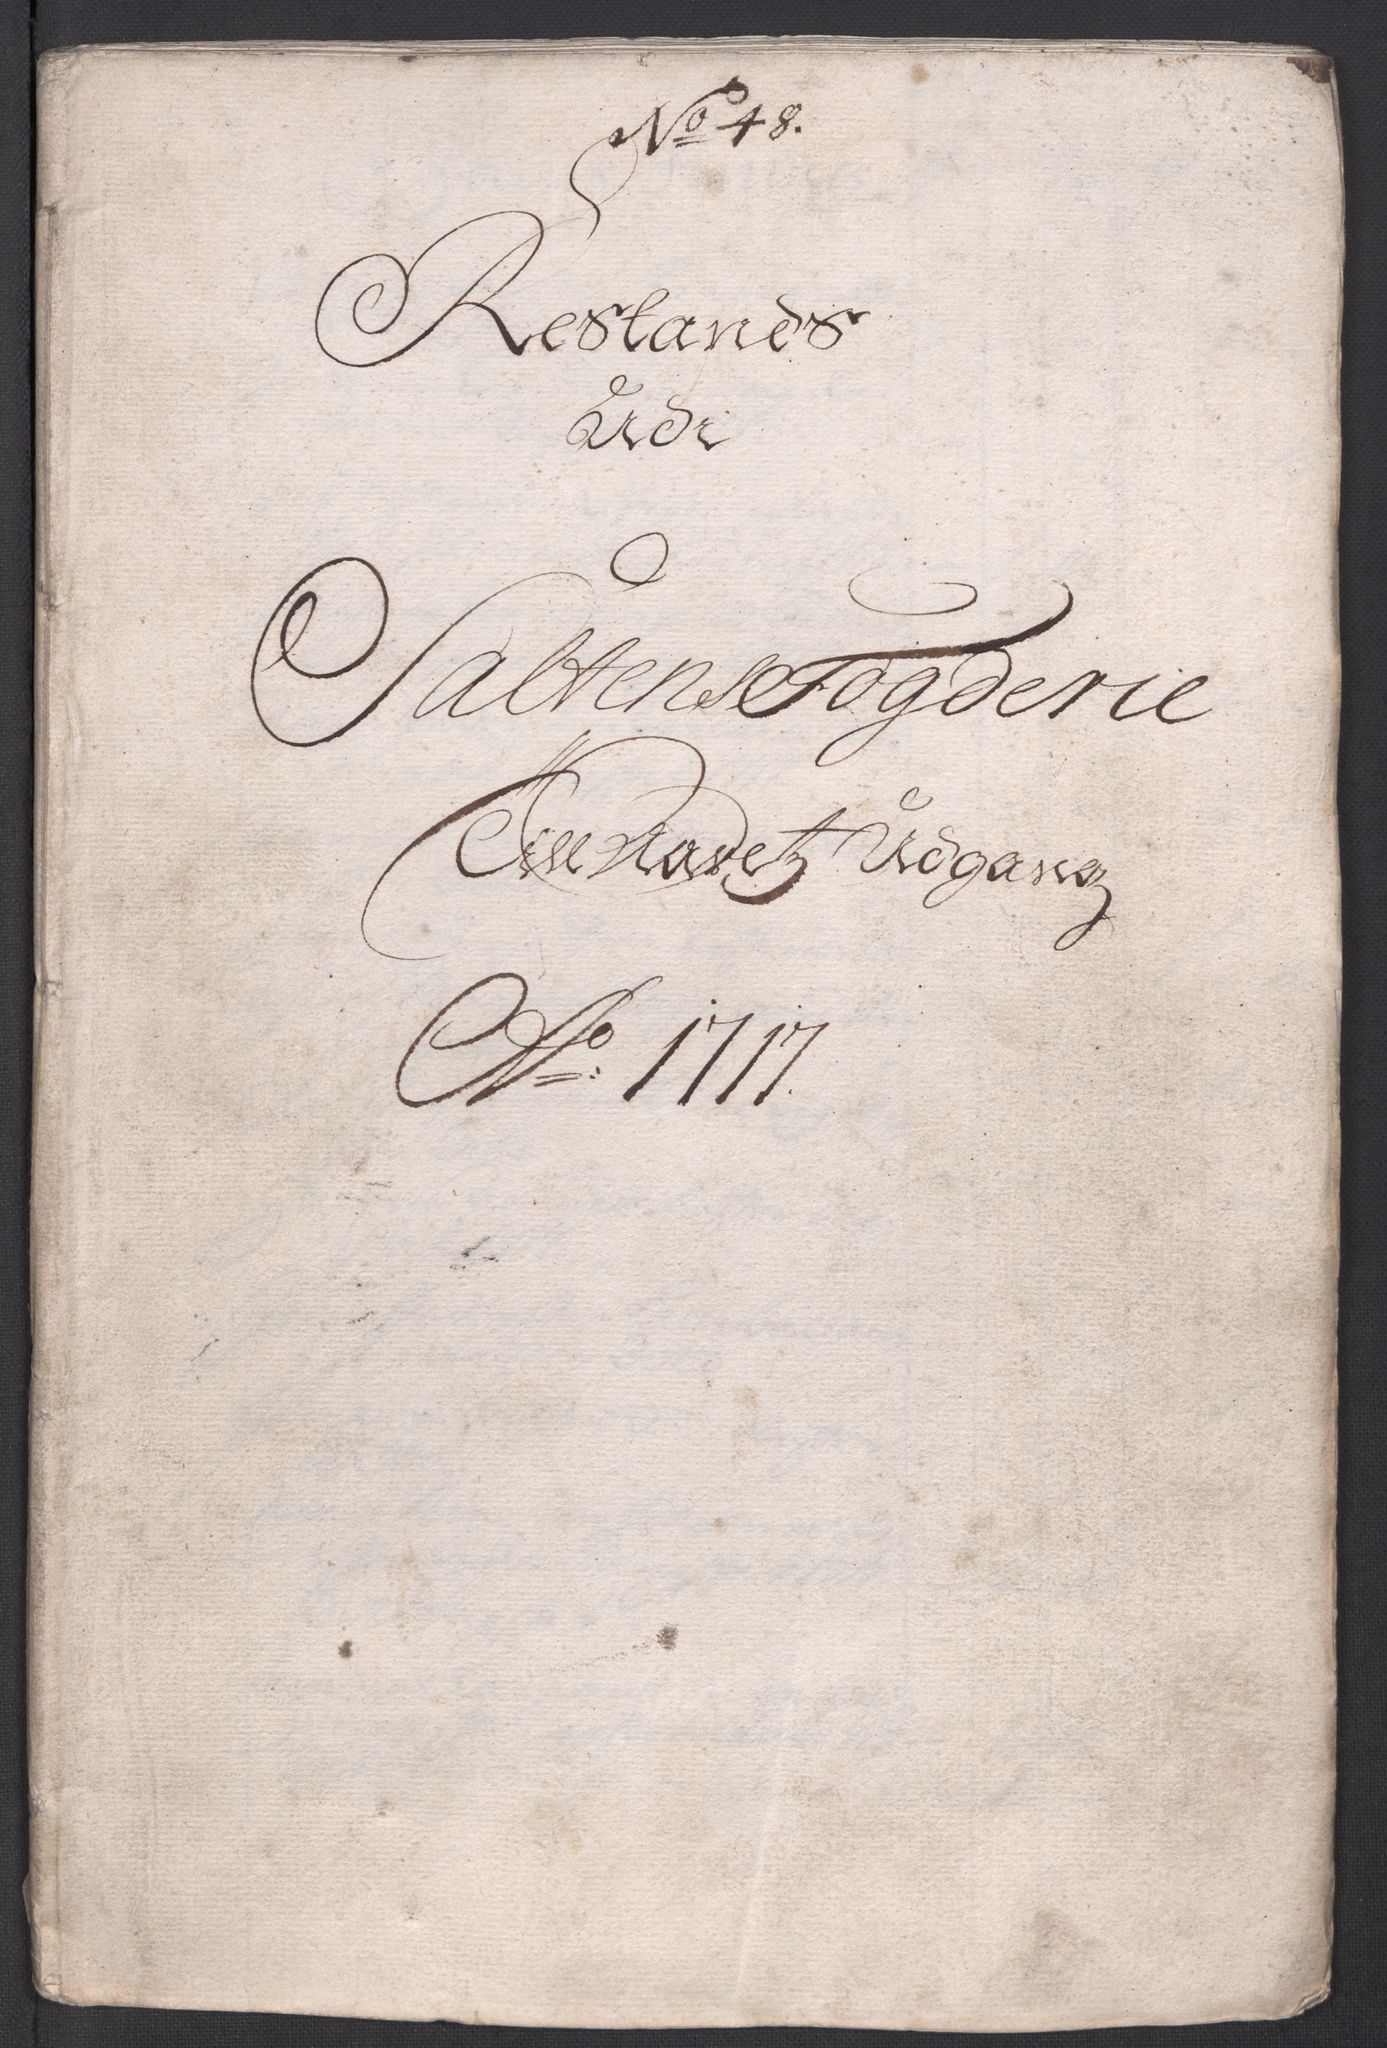 No 48.
Restands
Udi
Saltens Fogderie
Till Aaretz Udgang
Ao: 1717.